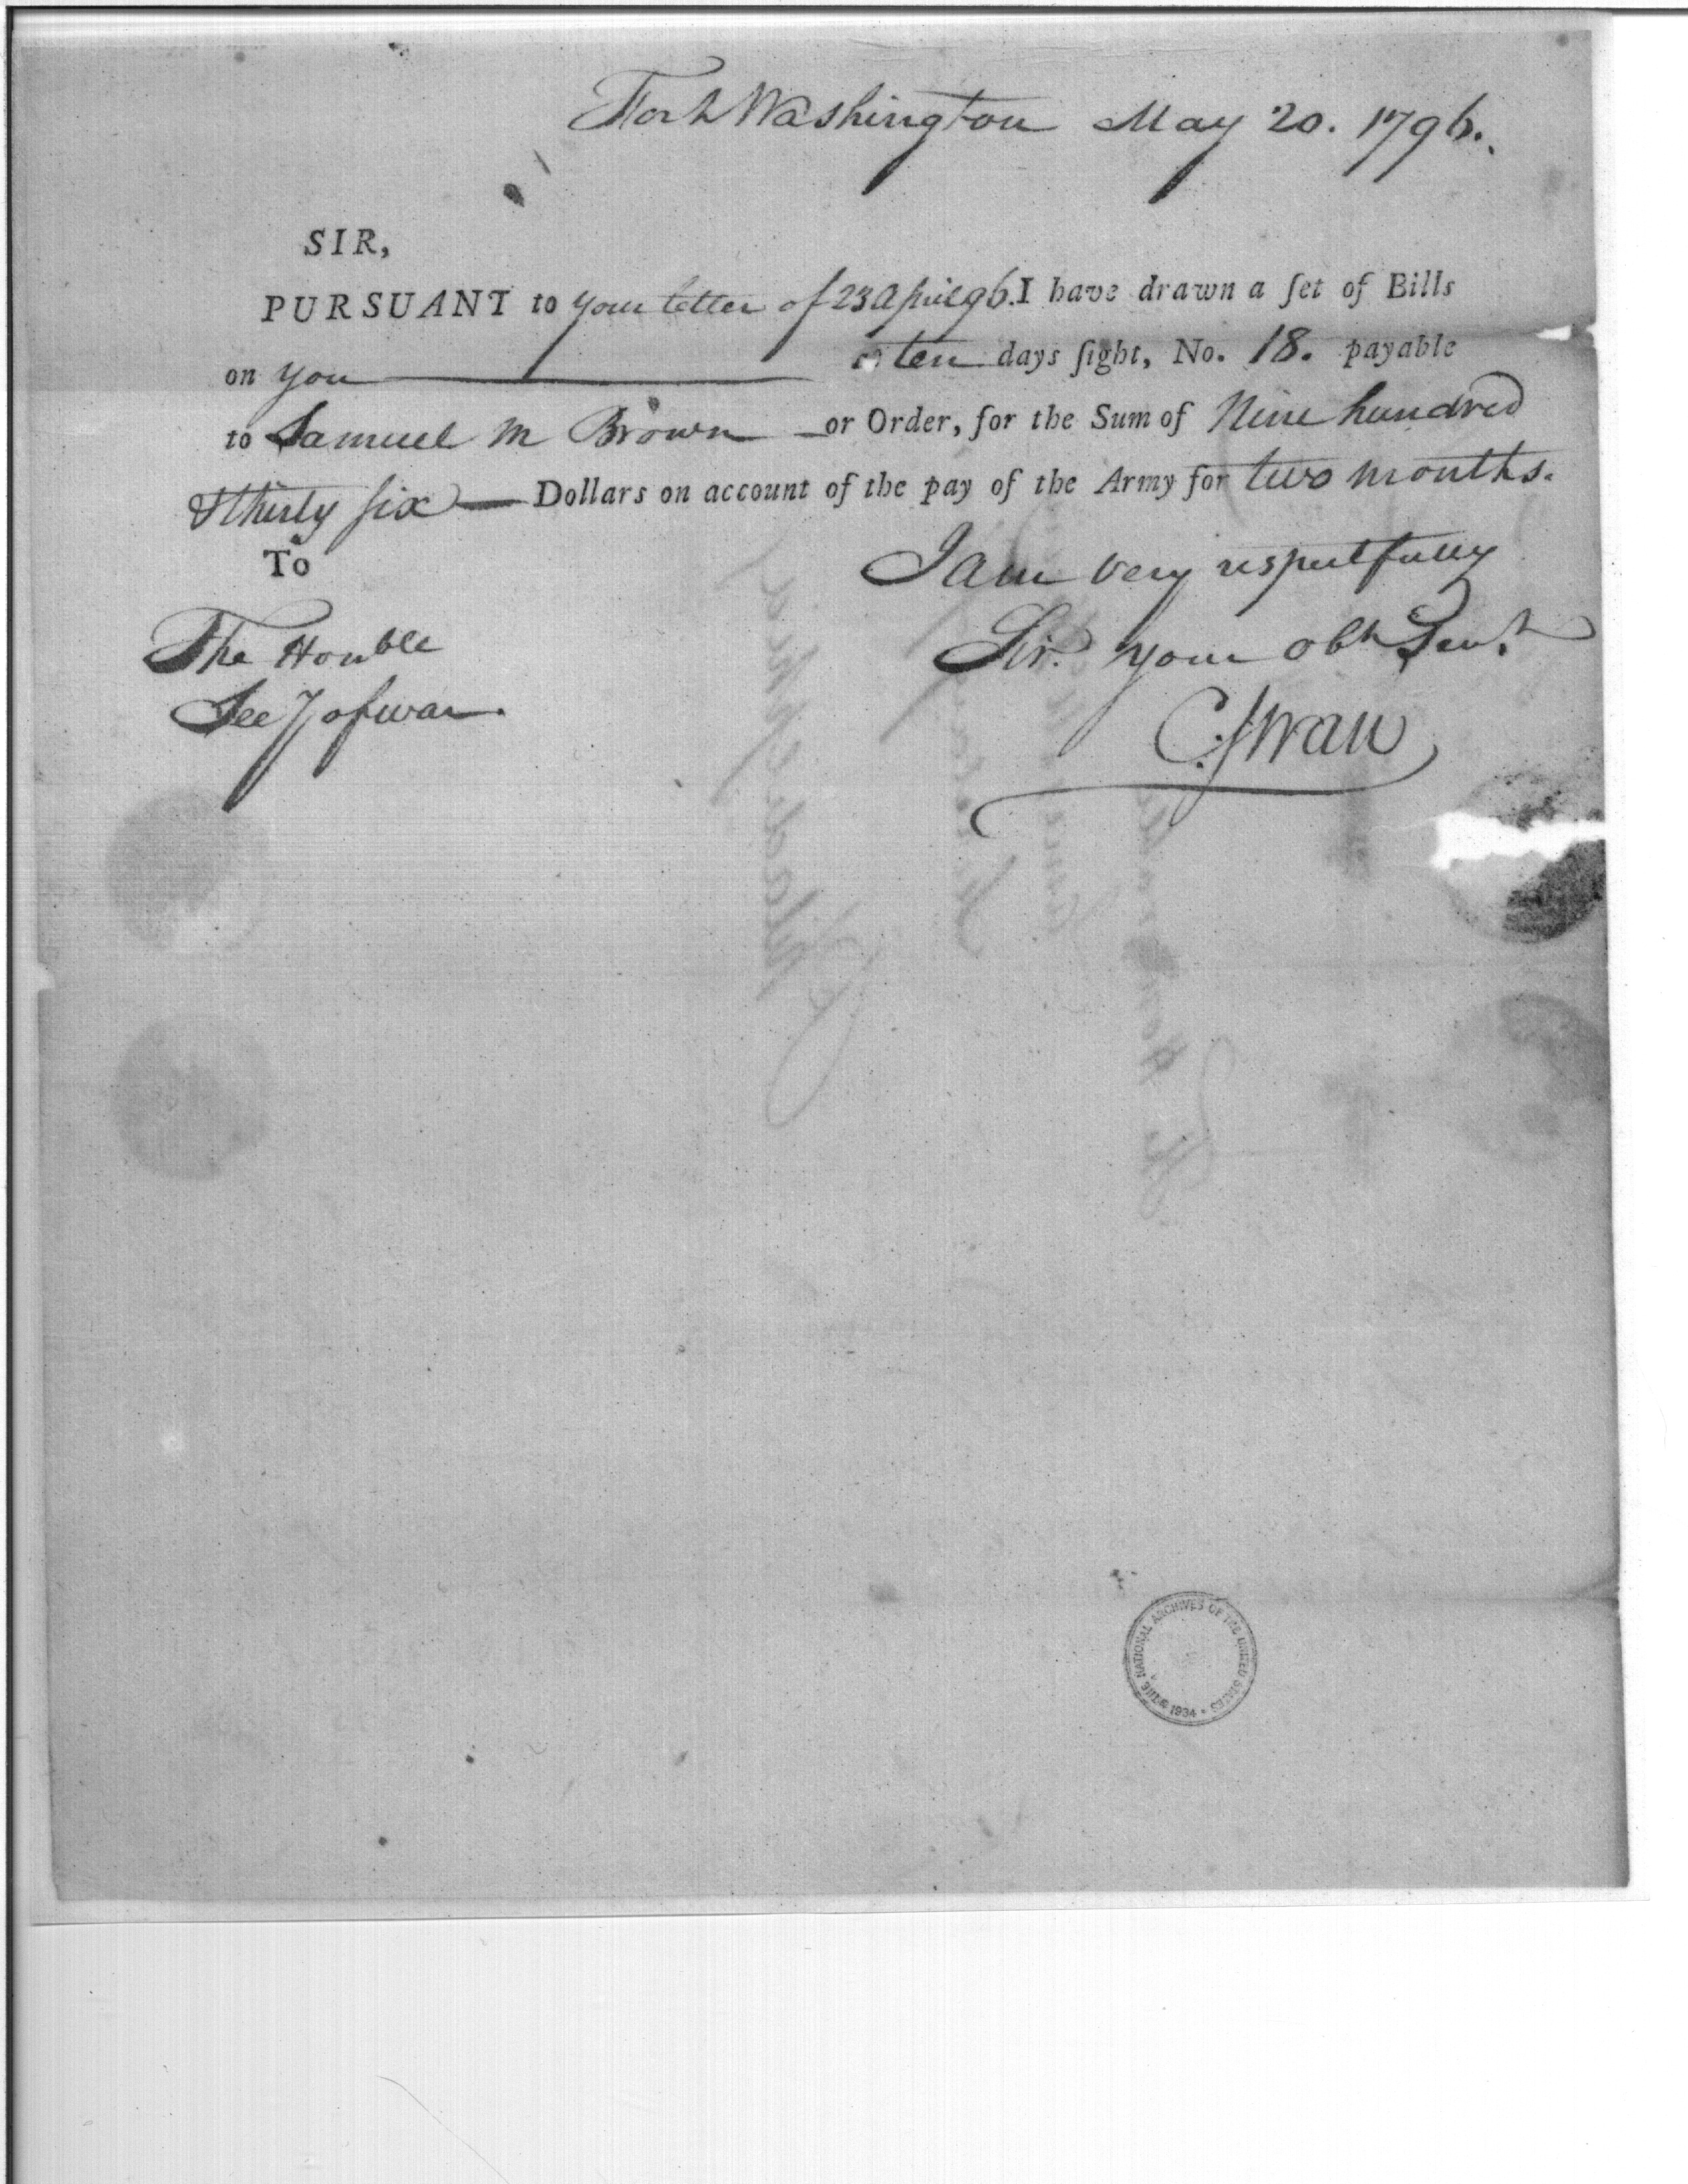 Fort Washington May 20. 1796.
SIR,
PURSUANT to your letter of 23 April 96. I have drawn a ſet of Bills
on you ten days ſight, No. 18. payable
to Samuel M Brown or Order, for the Sum of Nine hundred
& thirty six Dollars on account of the pay of the Army for two months.
To
I am very respectfully
The Honble
Sir. your obt Servt
Secy of war.
C. Swan
THE NATIONAL ARCHIVES OF THE UNITED STATES • 1934